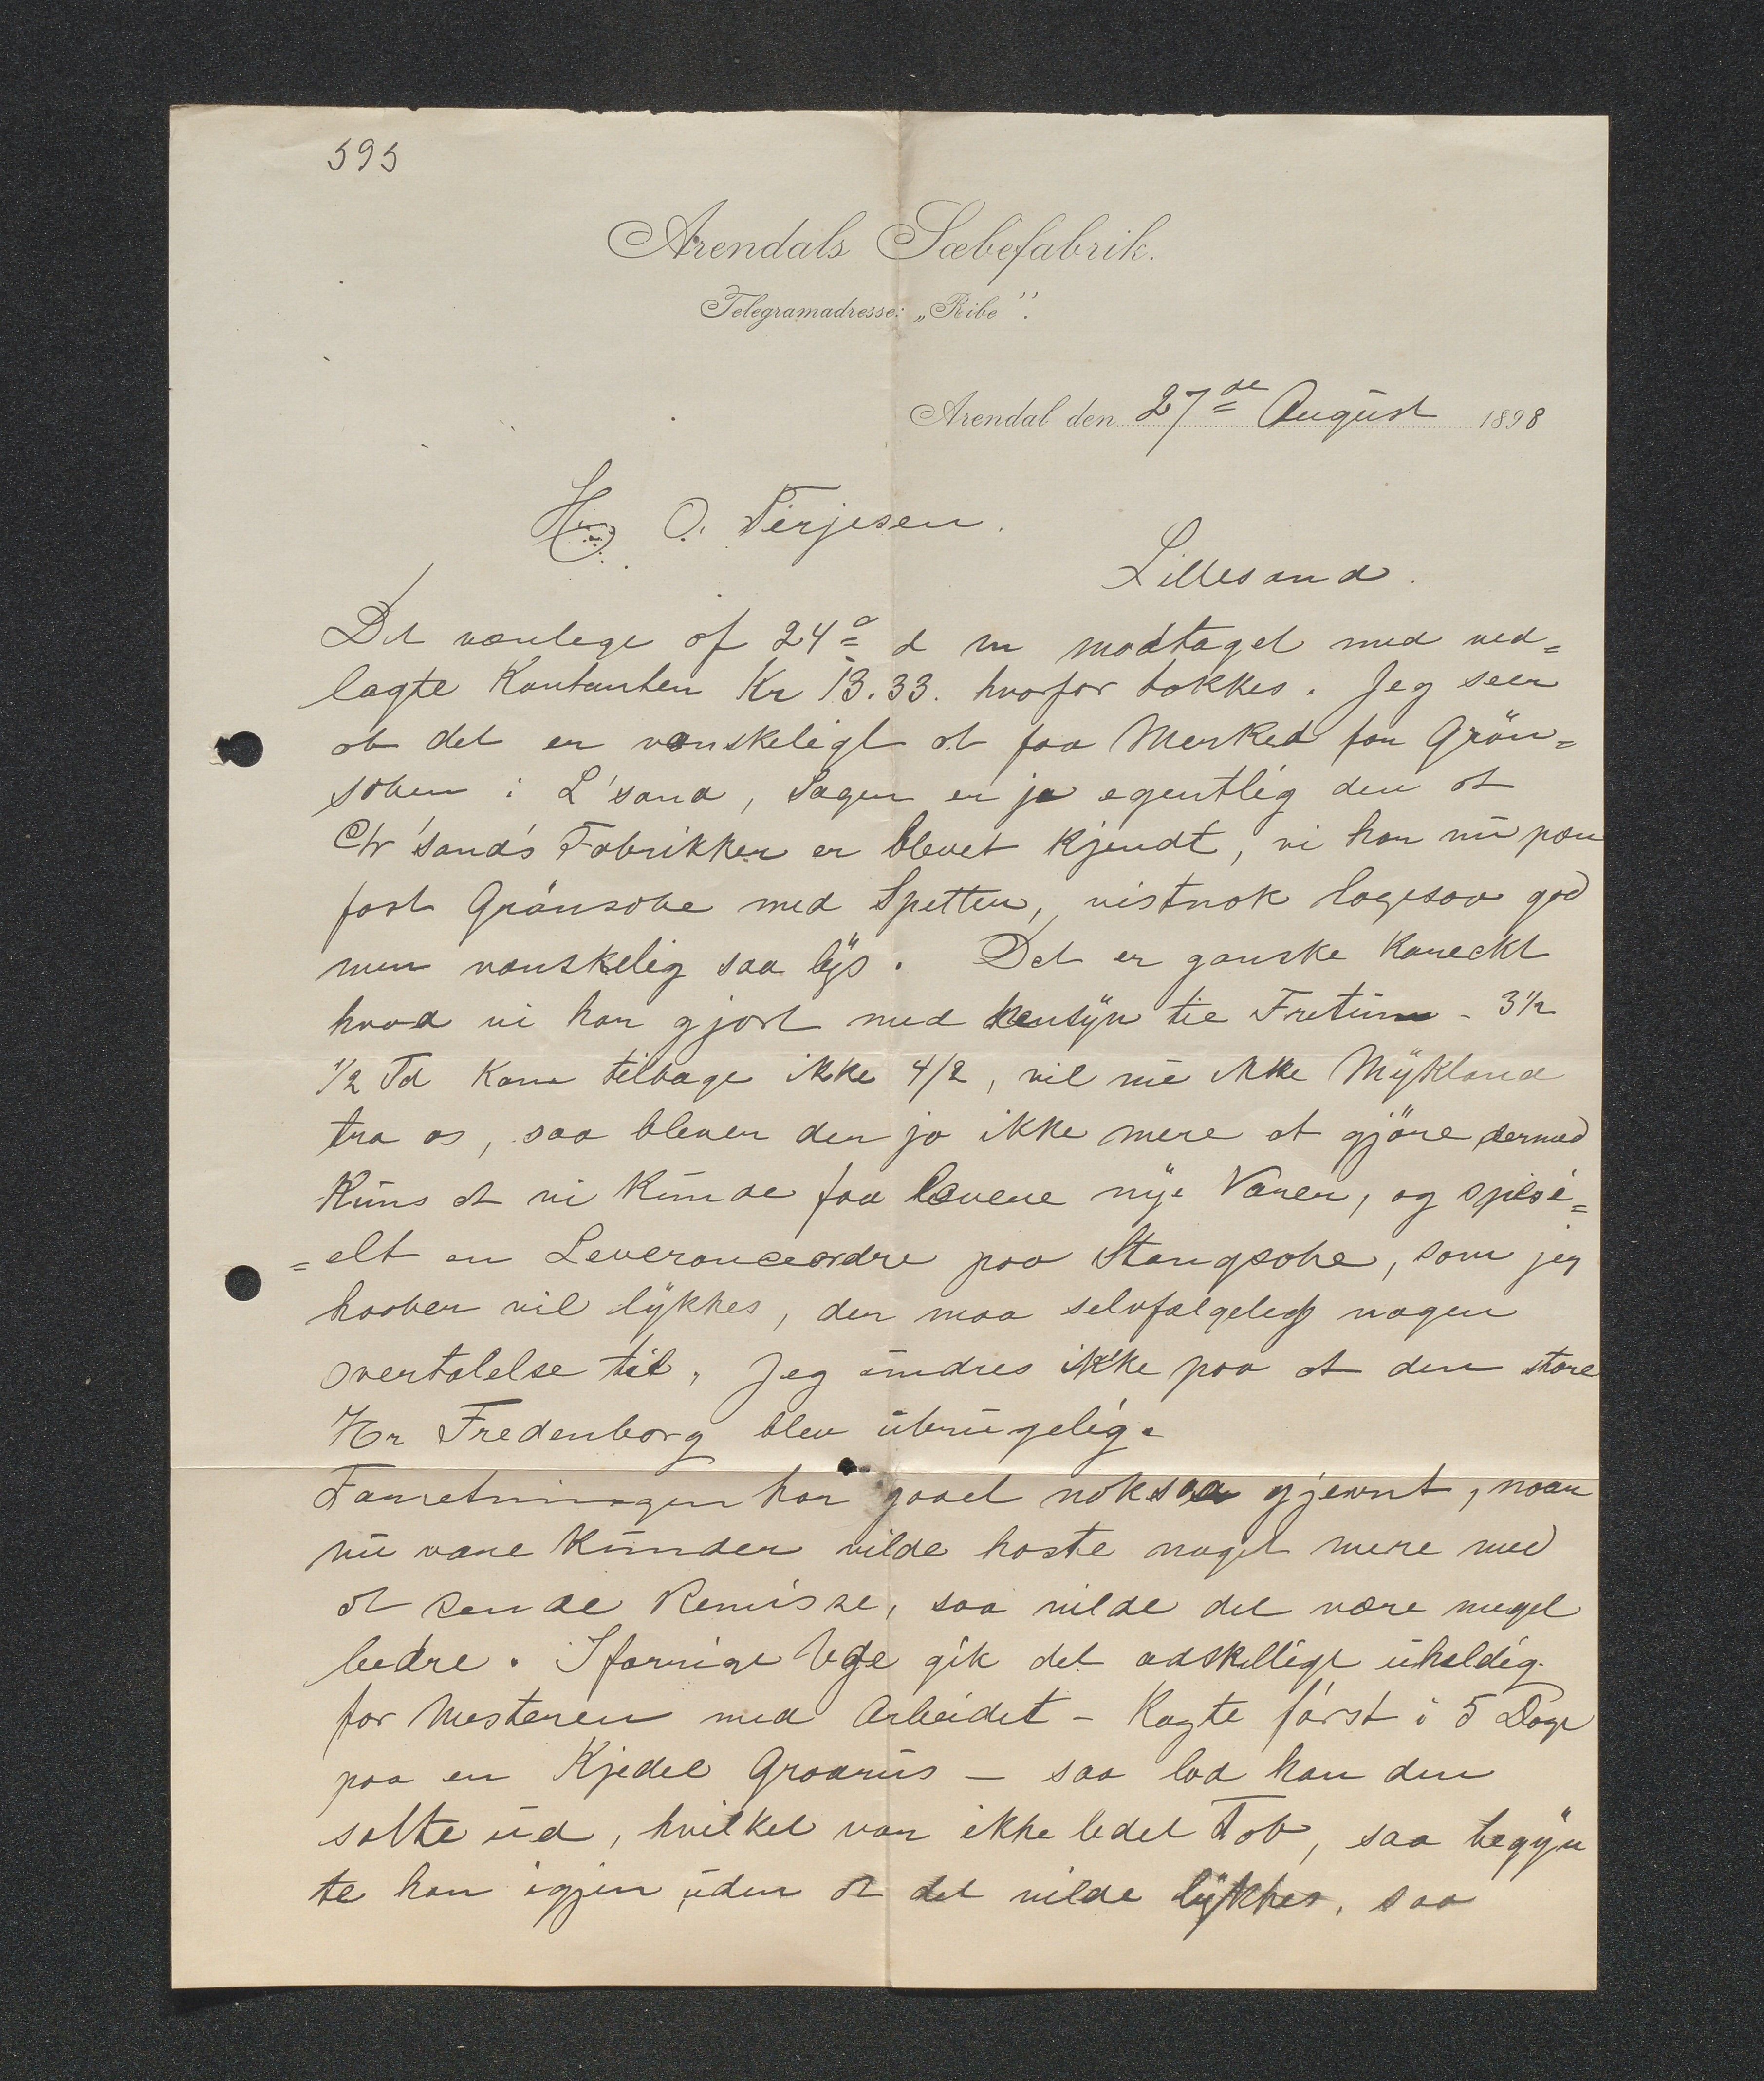 595
Arendals Sæbefabrik.
Telegramadresse: „Ribe".
Arendal den 27de August 1898
Hr. O. Terjesen.
Lillesand.
Det værdige af 24de d m modtaget med ved=
lagte Kontanten Kr 13.33. hvorfor takkes. Jeg seer
at det er vanskeligt at faa Merked for Grøn=
sæben i L'sand, Sagen er ja egentlig den at
Chr'sands Fabrikker er blevet kjendt, vi har nu pæn
fast Grønsæbe med Spetten, vistnok ligesaa god
men vanskelig saa lys. Det er ganske Korreckt
hvad vi har gjort med hensyn til Fretum - 3 1/2
1/2 Td Kom tilbage ikke 4/2, vil nu ikke Mykland
tra os, saa bliver der jo ikke mere at gjøre dermed
Kuns at vi Kunde faa levere nye Varer, og spesi=
=elt en Leveranceordre paa Stangsæbe, som jeg
haaber vil lykkes, der maa selvfølgelig nogen
overtalelse til. Jeg undres ikke paa at den store
Hr Fredenborg blev ubrugelig.
Forretningen har gaaet noksaa gjevnt, naar
nu vare Kunder vilde haste noget mere med
at sende Remisse, saa vilde det være meget
bedre. I forrige Uge gik det adskilligt uheldig
for Mesteren med Arbeidet - Kogte først i 5 Dage
paa en Kjedel Graanus - saa lod han den
salte ud, hvilket var ikke lidet Tab, saa begyn
te han igjen uden at det vilde lykkes, saa